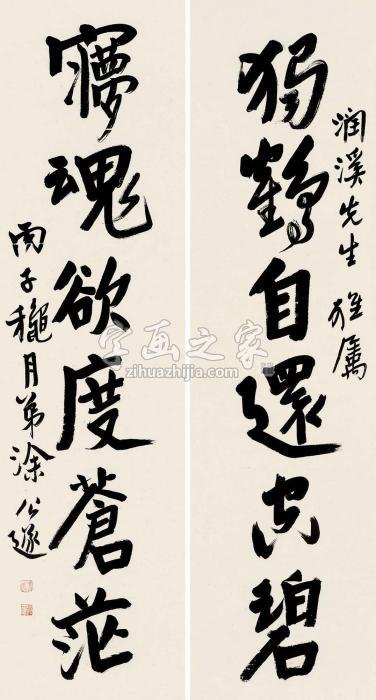 潤溪先生雅屬
獨鶴自還空碧
夢魂欲度蒼茫
丙子穐月弟涂公遂
字画之家
zihuazhijia.com